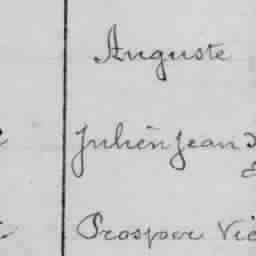 Auguste
Julien Jean
Prosper Vic